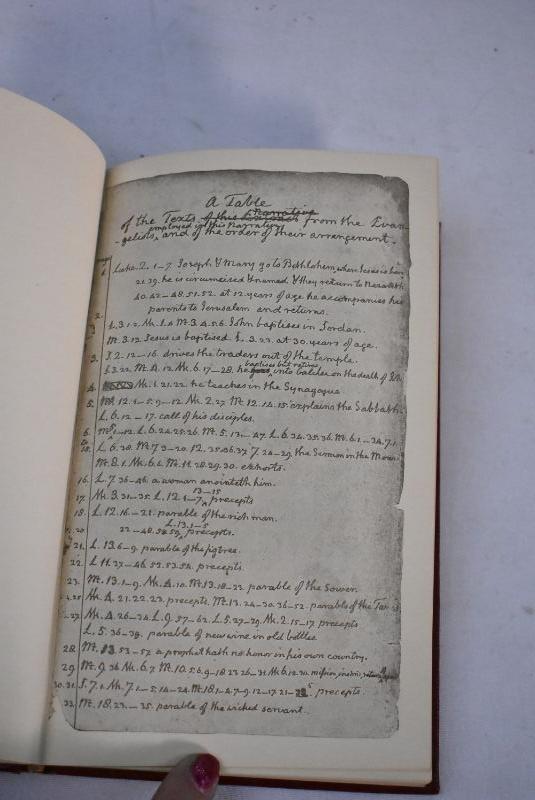 A Table
of the Texts of this Narrative from the Evan-
employed in this Narrative
-gelists, and of the order of their arrangement.
Luke. 2. 1-7 Joseph & Mary go to Bethlehem, where Jesus is born
21. 39. he is circumcised & named & they return to Nazareth
40. 42-48. 51. 52. at 12. years of age he accompanies his
parents to Jerusalem and returns.
2. L. 3. 1. 2. Mk. 1. 4. Mt. 3. 4. 5. 6. John baptises in Jordan.
Mt. 3. 13. Jesus is baptised. L. 3. 23. at 30. years of age.
3. J. 2. 12-16. drives the traders out of the temple.
baptises but retires
J. 3. 22. Mt. 4. 12. Mk. 6. 17-28. he into Galilee on the death of John
4. Mk. 1. 21. 22. he teaches in the Synagogue
5. Mt. 12. 1-5. 9-12. Mk. 2. 27. Mt. 12. 14. 15. explains the Sabbath
L. 6. 12-17. call of his disciples.
6. Mt. 5. 1-12. L. 6. 24. 25. 26. Mt. 5. 13.-47. L. 6. 34. 35. 36. Mt. 6. 1.-34. 7. 1.
to
15. L. 6. 38. Mt. 7. 3-20. 12. 35. 36. 37. 7. 24-29. the Sermon in the Mount
Mt. 8. 1. Mk. 6. 6. Mt. 11. 28. 29. 30. exhorts.
16. L. 7. 36-46. a woman anointeth him.
17. Mk. 3. 31-35. L. 12. 1-7. 13-15 precepts
18. L. 12. 16-21. parable of the rich man.
20. 22-48. 54-59. L. 13. 1-5 precepts.
21. L. 13. 6-9. parable of the figtree.
22. L. 11. 37-46. 52. 53. 54. precepts.
23. Mt. 13. 1-9. Mk. 4. 10. Mt. 13. 18-23. parable of the Sower.
25. Mk. 4. 21. 22. 23. precepts. Mt. 13. 24-30. 36-52. parable of the Tares
27. Mk. 4. 26-34. L. 9. 57-62. L. 5. 27-29. Mk. 2. 15-17 precepts
L. 5. 36-38. parable of new wine in old bottles.
28. Mt. 13. 53-57. a prophet hath no honor in his own country.
29. Mt. 9. 36. Mk. 6. 7. Mt. 10. 5. 6. 9-18. 23. 26-31. Mk. 6. 12. 30. mission, instrns, return
30. 31. J. 7. 1. Mk. 7. 1-5. 14-24. Mt. 18. 1-4. 7-9. 12-17. 21- precepts.
32. Mt. 18. 23.-35. parable of the wicked servant.